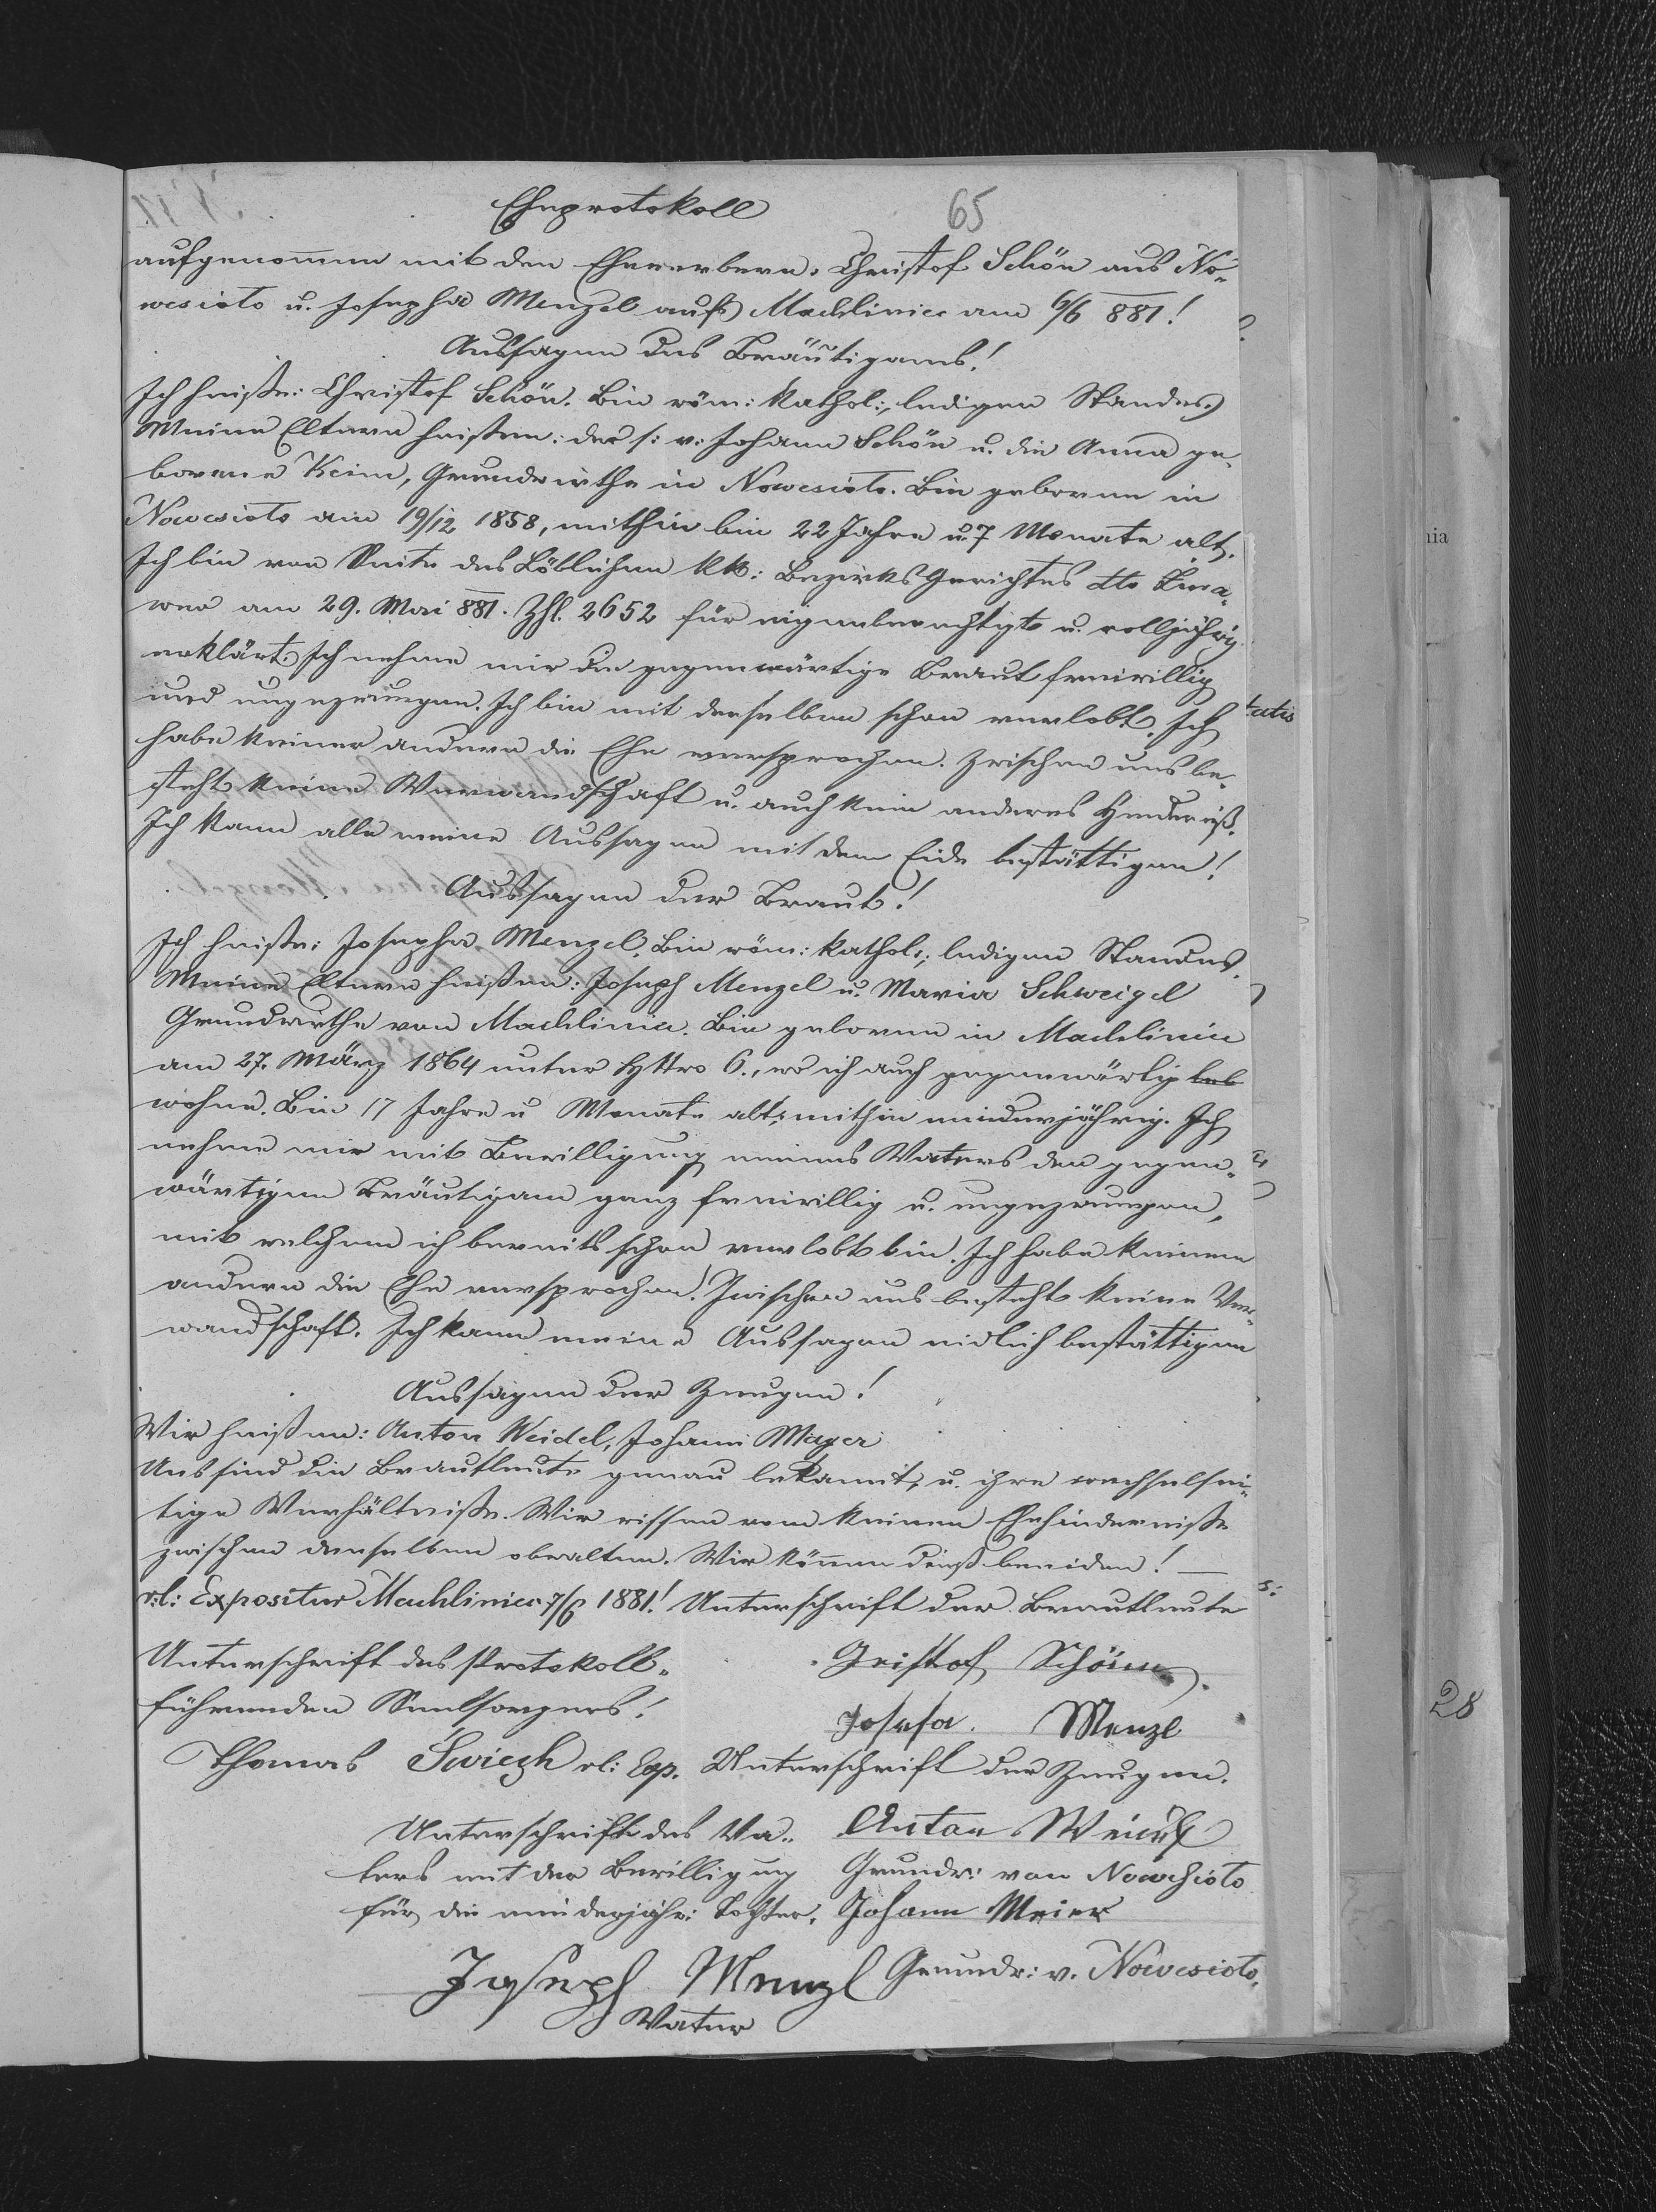 Eheprotokoll 65
aufgenommen mit den Ehewerbern: Christof Schön aus No-
wesioło u. Josepha Menzel auß Machliniec am 6/6 881!
Aussagen des Bräutigams!
Ich heiße: Christof Schön. Bin röm: kathol:, ledigen Standes.
Meine Eltern heißen: der s: v: Johann Schön u. die Anna ge-
borene Keim, Grundwirthe in Nowesioło. Bin geboren in
Nowesioło am 19/12 1858, mithin bin 22 Jahre u. 7 Monate alt.
Ich bin von Seite des Löblichen kk: Bezirks Gerichtes dto
am 29. Mai 881. Zhl. 2652 für eigenberechtigt u. volljährig
erklärt. Ich nehme mir die gegenwärtige Braut freiwillig
und ungezwungen. Ich bin mit derselben schon verlobt. Ich
habe keiner andern die Ehe versprochen. Zwischen uns be-
steht keine Verwandschaft u. auch kein anderes Hinderniß.
Ich kann alle meine Aussagen mit dem Eide bestättigen!
Aussagen der Braut!
Ich heiße: Josepha Menzel. Bin röm: kathol:, ledigen Standes.
Meine Eltern heißen: Joseph Menzel u. Maria Schweigel
Grundwirthe von Machliniec. Bin geboren in Machliniec
am 27. März 1864 unter HNro 6., wo ich auch gegenwärtig leb
wohne. Bin 17 Jahre u Monate alt, mithin minderjährig. Ich
nehme mir mit Bewilligung meines Vaters den gegen-
wärtigen Bräutigam ganz freiwillig u. ungezwungen,
mit welchem ich bereits schon verlobt bin. Ich habe keinem
andern die Ehe versprochen! Zwischen uns besteht keine Ver-
wandschaft. Ich kann meine Aussagen eidlich bestättigen
Aussagen der Zeugen!
Wir heißen: Anton Weidel, Johann Mayer
Uns sind die Brautleute genau bekannt, u. ihre wechselsei-
tige Verhältniße. Wir wissen von keinem Ehehinderniße
zwischen denselben obwalten. Wir können dieß beeiden! —
r:l: Expositur Machliniec 7/6 1881! Unterschrift der Brautleute
Unterschrift des Protokoll- Gristof Schönn.
führenden Seelsorgers! Josefa Menzl
Thomas Swiezh rl: Exp. Unterschrift der Zeugen.
Unterschrift des Va- Anton Weidel
ters mit der Bewilligung Grundw: von Nowesioło
für die minderjähr: Tochter. Johann Meier
Joseph Menzl Grundw: v. Nowesioło.
Vater
nia
tatis
28